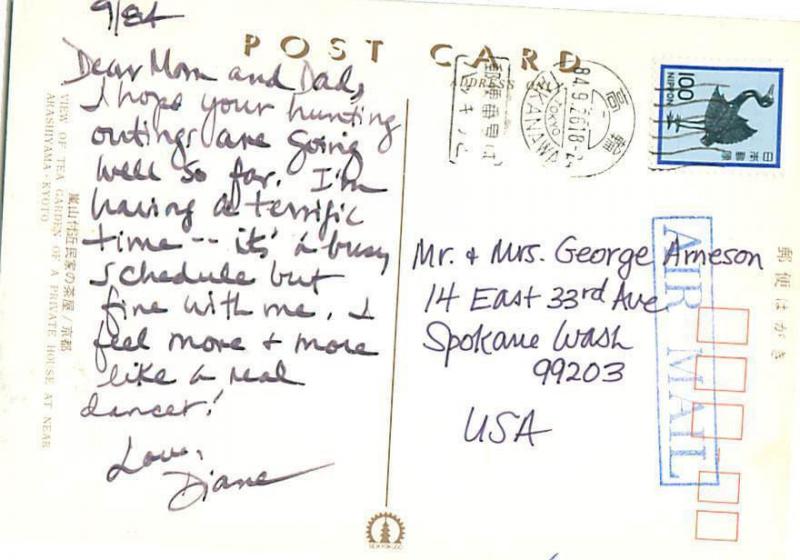 9/84
POST CARD
ADDRESS ONLY
Dear Mom and Dad,
I hope your hunting
outings are going
well so far. I'm
having a terrific
time -- it's a busy
schedule but
fine with me. I
feel more + more
like a real
dancer!
Love,
Diane
嵐山付近民家の茶屋/京都
VIEW OF TEA GARDEN OF A PRIVATE HOUSE AT NEAR
ARASHIYAMA·KYOTO
郵便番号は
高輪
84.9.26 18-24
TOKYO
TAKANAWA
100
NIPPON
日本郵便
Mr. + Mrs. George Arneson
14 East 33rd Ave.
Spokane Wash
99203
USA
AIR MAIL
郵便はがき